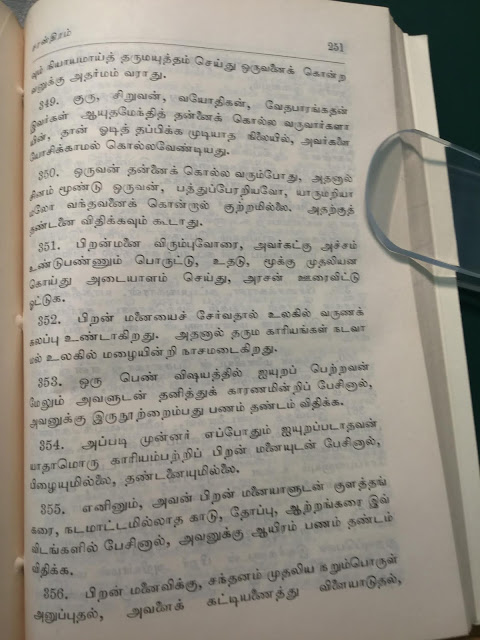 சாஸ்திரம் 251
வும் நியாயமாய்த் தருமயுத்தம் செய்து ஒருவனைக் கொன்ற
வனுக்கு அதர்மம் வராது.
349. குரு, சிறுவன், வயோதிகன், வேதபாரங்கதன்
இவர்கள் ஆயுதமேந்தித் தன்னைக் கொல்ல வருவார்களா
யின், தான் ஓடித் தப்பிக்க முடியாத நிலையில், அவர்களை
யோசிக்காமல் கொல்லவேண்டியது.
350. ஒருவன் தன்னைக் கொல்ல வரும்போது, அதனால்
சினம் மூண்டு ஒருவன், பத்துப்பேரறியவோ, யாருமறியா
மலோ வந்தவனைக் கொன்றால் குற்றமில்லை. அதற்குத்
தண்டனை விதிக்கவும் கூடாது.
351. பிறன்மனை விரும்புவோரை, அவர்கட்கு அச்சம்
உண்டுபண்ணும் பொருட்டு, உதடு, மூக்கு முதலியன
கொய்து அடையாளம் செய்து, அரசன் ஊரைவிட்டு
ஓட்டுக.
352. பிறன் மனையைச் சேர்வதால் உலகில் வருணக்
கலப்பு உண்டாகிறது. அதனால் தரும காரியங்கள் நடவா
மல் உலகில் மழையின்றி நாசமடைகிறது.
353. ஒரு பெண் விஷயத்தில் ஐயுறப் பெற்றவன்
மேலும் அவளுடன் தனித்துக் காரணமின்றிப் பேசினால்,
அவனுக்கு இருநூற்றைம்பது பணம் தண்டம் விதிக்க.
354. அப்படி முன்னர் எப்போதும் ஐயுறப்படாதவன்
யாதாமொரு காரியம்பற்றிப் பிறன் மனையுடன் பேசினால்,
பிழையுமில்லை, தண்டனையுமில்லை.
355. எனினும், அவன் பிறன் மனையாளுடன் குளத்தங்
கரை, நடமாட்டமில்லாத காடு, தோப்பு, ஆற்றங்கரை இவ்
விடங்களில் பேசினால், அவனுக்கு ஆயிரம் பணம் தண்டம்
விதிக்க.
356. பிறன் மனைவிக்கு, சந்தனம் முதலிய நறும்பொருள்
அனுப்புதல், அவளைக் கட்டியணைத்து விளையாடுதல்,